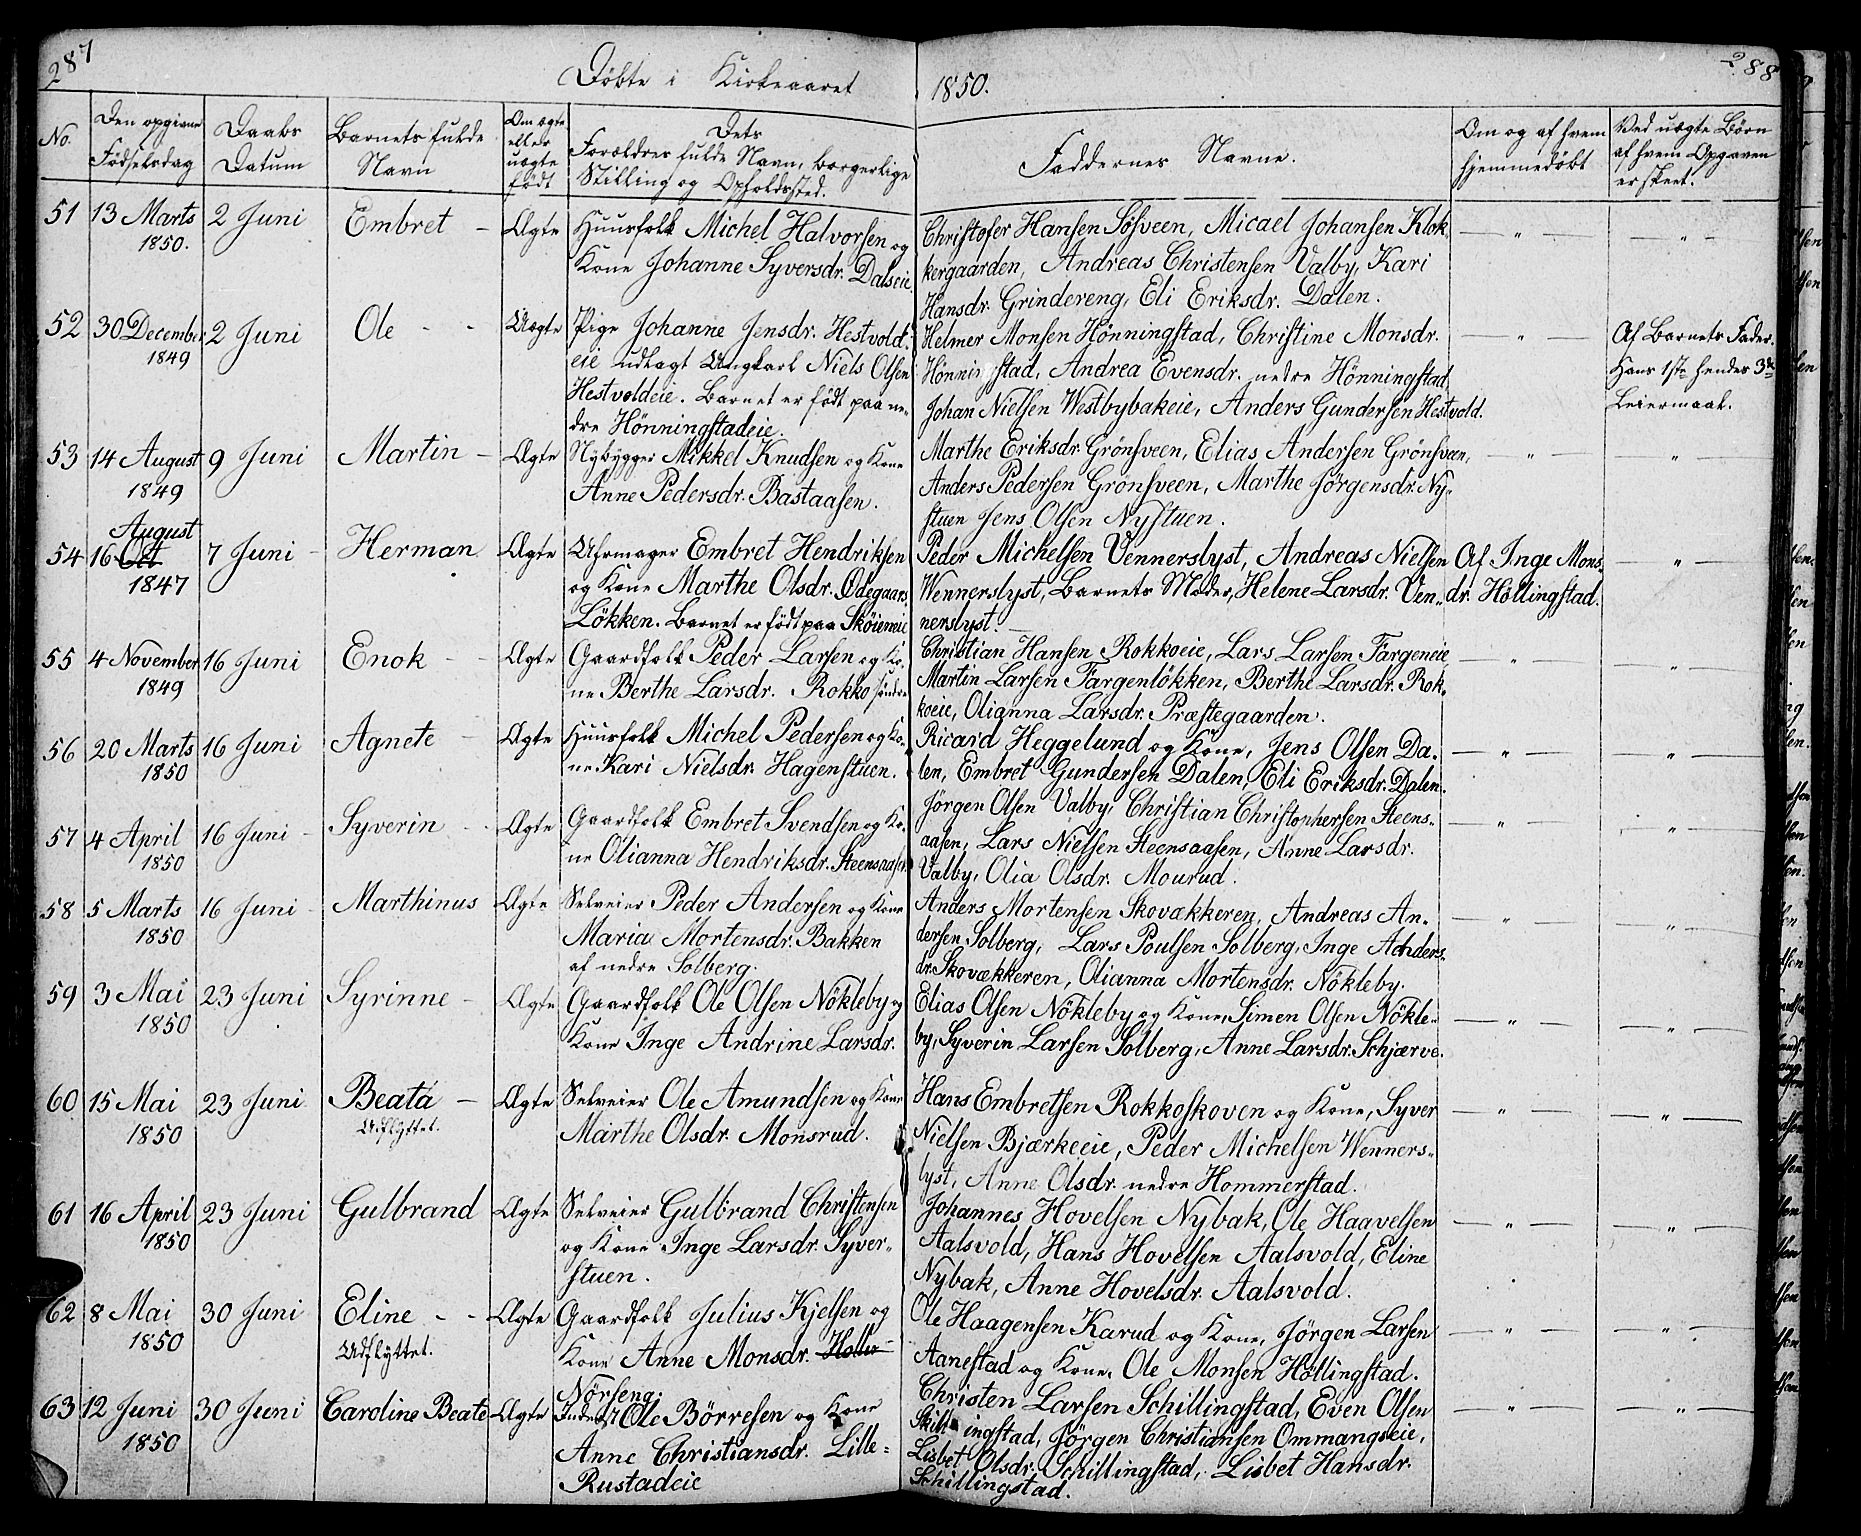 287
288
Döbte i Kirkeaaret 1850.
No.
Den opgivne Födselsdag
Daabs Datum
Barnets fulde Navn
Om ægte eller uægte födt
Dets Forældres fulde Navn, borgerlige Stilling og Opholdssted.
Faddernes Navne.
Om og af hvem hjemmedöbt
Ved uægte Börn af hvem Opgaven er skeet.
51 13 Marts 2 Juni Embret - Ægte Huusfolk Michel Halvorsen og Christofer Hansen Sösveen, Micael Johansen Klok- — " — — " —
1850. Kone Johanne Syversdr. Dalseie kergaarden, Andreas Christensen Valby, Kari
Hansdr. Grindereng, Eli Eriksdr. Dalen.
52 30 December 2 Juni Ole - - Uægte Pige Johanne Jensdr. Hestvold- Helmer Monsen Hönningstad, Christine Monsdr. — " — Af Barnets Fader.
1849 eie udlagt Ungkarl Niels Olsen Hönningstad, Andrea Evensdr. nedre Hönningstad, Hans 1ste hendes 3die
Hestvoldeie. Barnet er födt paa ne- Johan Nielsen Westbybakeie, Anders Gundersen Hestvold. Leiermaal.
dre Hönningstadeie.
53 14 August 9 Juni Martin - Ægte Nybygger Mikkel Knudsen og Kone Marthe Eriksdr. Grönsveen, Elias Andersen Grönsveen, — " — — " —
1849 Anne Pedersdr. Bastaasen. Anders Pedersen Grönsveen, Marthe Jörgensdr. Ny-
stuen Jens Olsen Nystuen.
August
54 16 Oct 7 Juni - Herman Ægte Uhrmager Embret Hendriksen Peder Michelsen Vennerslyst, Andreas Nielsen Af Inge Mons- — " —
1847 og Kone Marthe Olsdr. Ödegaars- Wennerslyst, Barnets Moder, Helene Larsdr. Ven- dr. Höllingstad.
Lökken. Barnet er födt paa Sköieneie nerslyst. —
55 4 November 16 Juni Enok - - Ægte Gaardfolk Peder Larsen og Ko- Christian Hansen Rokkoeie, Lars Larsen Fargeneie — " — — " —
1849 ne Berthe Larsdr. Rokko söndre Martin Larsen Fargenlökken, Berthe Larsdr. Rok-
koeie, Olianna Larsdr. Præstegaarden.
56 20 Marts 16 Juni Agnete - Ægte Huusfolk Michel Pedersen og Ko- Ricard Heggelund og Kone, Jens Olsen Da- — " — — " —
1850 ne Kari Nielsdr. Hagenstuen. len, Embret Gundersen Dalen, Eli Eriksdr. Dalen.
57 4 April 16 Juni - Syverin - Ægte Gaardfolk Embret Svendsen og Ko- Jörgen Olsen Valby, Christian Christophersen Steens- — " — — " —
1850 ne Olianna Hendriksdr. Steensaasen aasen, Lars Nielsen Steensaasen, Anne Larsdr.
Valby, Olia Olsdr. Mourud.
58 5 Marts 16 Juni - Marthinus Ægte Selveier Peder Andersen og Kone Anders Mortensen Skovækkeren, Andreas An- — " — — " —
1850 Maria Mortensdr. Bakken dersen Solberg, Lars Poulsen Solberg, Inge Anders-
af nedre Solberg. dr. Skovækkeren, Olianna Mortensdr. Nökleby.
59 3 Mai 23 Juni Syrinne - Ægte Gaardfolk Ole Olsen Nökleby og Elias Olsen Nökleby og Kone, Simen Olsen Nökle- — " — — " —
1850 Kone Inge Andrine Larsdr. by, Syverin Larsen Solberg, Anne Larsdr. Schjærve.
60 15 Mai 23 Juni Beata - Ægte Selveier Ole Amundsen og Kone Hans Embretsen Rokkoskoven og Kone, Syver — " — — " —
1850 Udflyttet. Marthe Olsdr. Monsrud. Nielsen Bjærkeeie, Peder Michelsen Wenners-
lyst, Anne Olsdr. nedre Hommerstad.
61 16 April 23 Juni Gulbrand Ægte Selveier Gulbrand Christensen Johannes Hovelsen Nybak, Ole Haavelsen — " — — " —
1850 og Kone Inge Larsdr. Syver- Aalsvold, Hans Hovelsen Aalsvold, Eline
stuen. Nybak, Anne Hovelsdr. Aalsvold.
62 8 Mai 30 Juni Eline - - Ægte Gaardfolk Julius Kjelsen og Ole Haagensen Karud og Kone, Jörgen Larsen — " — — " —
1850 Udflyttet. Kone Anne Monsdr. Aanestad og Kone, Ole Monsen Höllingstad.
Nörseng.
63 12 Juni 30 Juni Caroline Beate Ægte Inderst Ole Börresen og Kone Christen Larsen Schillingstad, Even Olsen — " — — " —
1850 Anne Christiansdr. Lille- Skillingstad, Jörgen Christiansen Ommangseie,
Rustadeie Lisbet Olsdr. Schillingstad, Lisbet Hansdr.
Schillingstad.